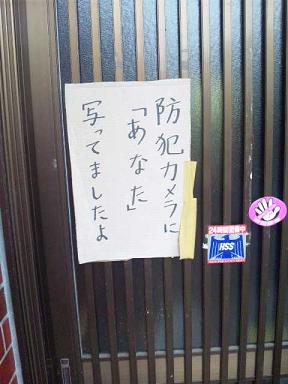 防犯カメラに
「あなた」
写ってましたよ
24時間警備中
HSS